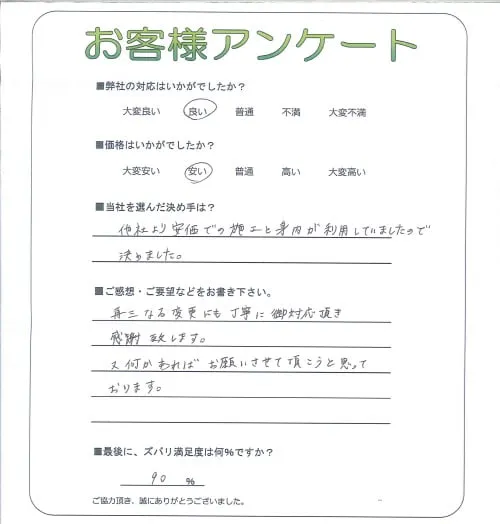 お客様アンケート
■弊社の対応はいかがでしたか？
大変良い 良い 普通 不満 大変不満
■価格はいかがでしたか？
大変安い 安い 普通 高い 大変高い
■当社を選んだ決め手は？
他社より安価での施工と身内が利用していましたので
決めました。
■ご感想・ご要望などをお書き下さい。
再三なる変更にも丁寧に御対応頂き
感謝致します。
又何かあればお願いさせて頂こうと思って
おります。
■最後に、ズバリ満足度は何％ですか？
90 %
ご協力頂き、誠にありがとうございました。